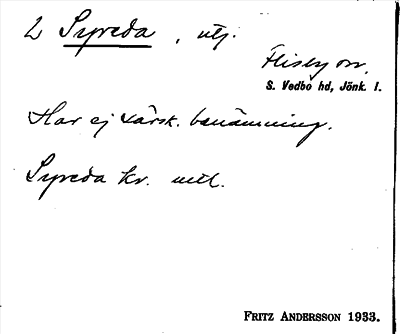 2 Syreda, utj.
Flisby sn.
S. Vedbo hd, Jönk. l.
Har ej särsk. benämning.
Syreda kv. utl.
FRITZ ANDERSSON 1933.